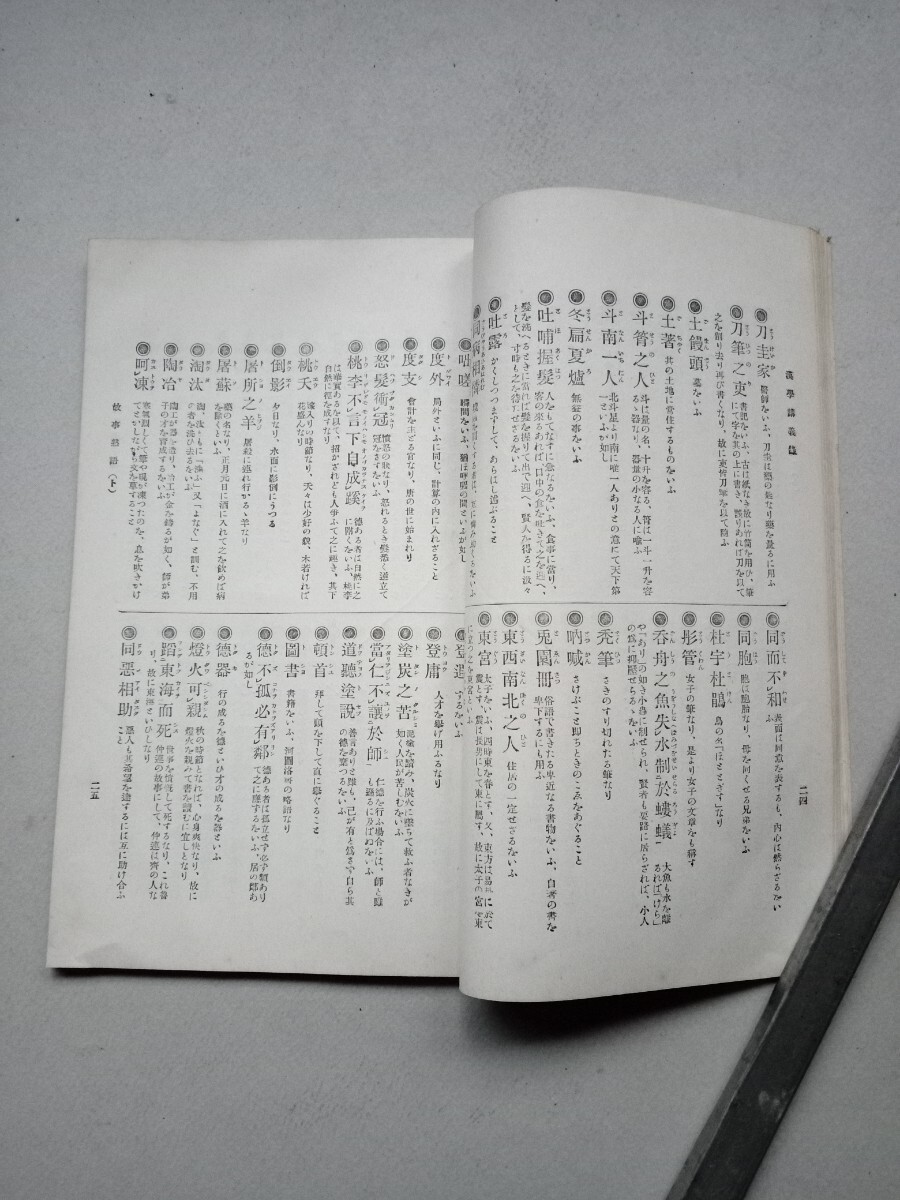 漢學講義錄
刀圭家 醫師をいふ、刀圭は藥の匙なり藥を量るに用ふ
刀筆之吏 書記をいふ、古は紙なき故に竹簡を用ひ、筆にて字を其の上に書き、誤りあれば刀を以て之を削り去り再び書くなり、故に吏皆刀筆を以て
土饅頭 墓をいふ
土著 其の土地に常住するものをいふ
斗筲之人 斗は量の名、十升を容る、筲は一斗二升を容るゝ器なり、器量の小なる人に喩ふ
斗南一人 北斗星より南に唯一人ありとの意にて天下第一といふが如し
冬扇夏爐 無益の事をいふ
吐哺握髮 人をもてなすに急なるをいふ、食事に當り、客の來るあれば、口中の食を吐きて之を迎へ、髮を洗へるときに當れば髮を握りて出で迎へ、賢人を得るに汲々として、寸時も之を待たせざるをいふ
吐露 かくしつつまずして、あらはし述ぶること
同而不和 表面は同意を表するも、內心は然らざるをいふ
同胞 胞は胞胎なり、母を同くせる兄弟をいふ
杜宇杜鵑 鳥の名「ほととぎす」なり
彤管 女子の筆なり、是より女子の文章をも稱す
吞舟之魚失水制於螻蟻 大魚も水を離るれば「けら」や「あり」の如き小蟲に制せられ、賢者も要路に居らざれば、小人の爲に
禿筆 さきのすり切れたる筆なり
吶喊 さけぶこと即ちときのこゑをあぐること
兎園冊 俗語で書きたる卑近なる書物をいふ、自著の書を卑下するにも用ふ
東西南北之人 住居の一定せざるをいふ
東宮 太子をいふ、四時東を春とす、又、東方は易
二四
度外 局外といふに同じ、計算の內に入れざること
度支 會計を主どる官なり、唐の世に始まれり
怒髮衝冠 憤怒の貌なり、怒れるとき髮悉く逆立て冠をなさすをいふ
桃李不言下自成蹊 德ある者は自然に之に附くをいふ、桃李は華實あるを以て、招かざれども人爭ふて之に趣き、其下自然に徑を成すなり
桃夭 嫁入りの時節なり、夭々は少好の貌、木若ければ花盛んなり
倒影 夕日なり、水面に影倒にうつる
屠所之羊 屠殺に連れ行かるゝ羊なり
屠蘇 藥の名なり、正月元日に酒に入れて之を飮めば病なしといふ
淘汰 淘、汰、ともに「洗ふ」又「よなぐ」と訓む、不用の者を洗ひ去るをいふ
陶冶 陶工が器を造り、冶工が金を鑄るが如く、師が弟子を育成するをいふ
呵凍
登庸 人才を擧げ用ふるなり
塗炭之苦 泥塗を踏み、炭火に墮ちて救ふ者なきが如く人民が苦しむをいふ
當仁不讓於師 仁德を行ふ場合には、師と雖も讓るに及ばぬをいふ
道聽塗說 善言ありと雖も、己が有と爲さず自ら其の德を棄つるをいふ
頓首 拜して頭を下して直に擧ぐること
圖書 書籍をいふ、河圖洛書の略語なり
德不孤必有鄰 德ある者は孤立せず必ず類ありて之に應ずるをいふ、居の鄰あるが如し
德器 行の成るを德といひ才の成るを器といふ
燈火可親 秋の時節となれば、心身爽快なり、故に燈火を親めて書を讀むに宜しとなり
蹈東海而死 世事を憤慨して死するなり、これ魯仲連の故事にして、仲連は齊の人なり、故に東海といひしなり
同惡相助 惡人も其希望を達するには互に助け合ふこと
故事熟語（ト）
二五